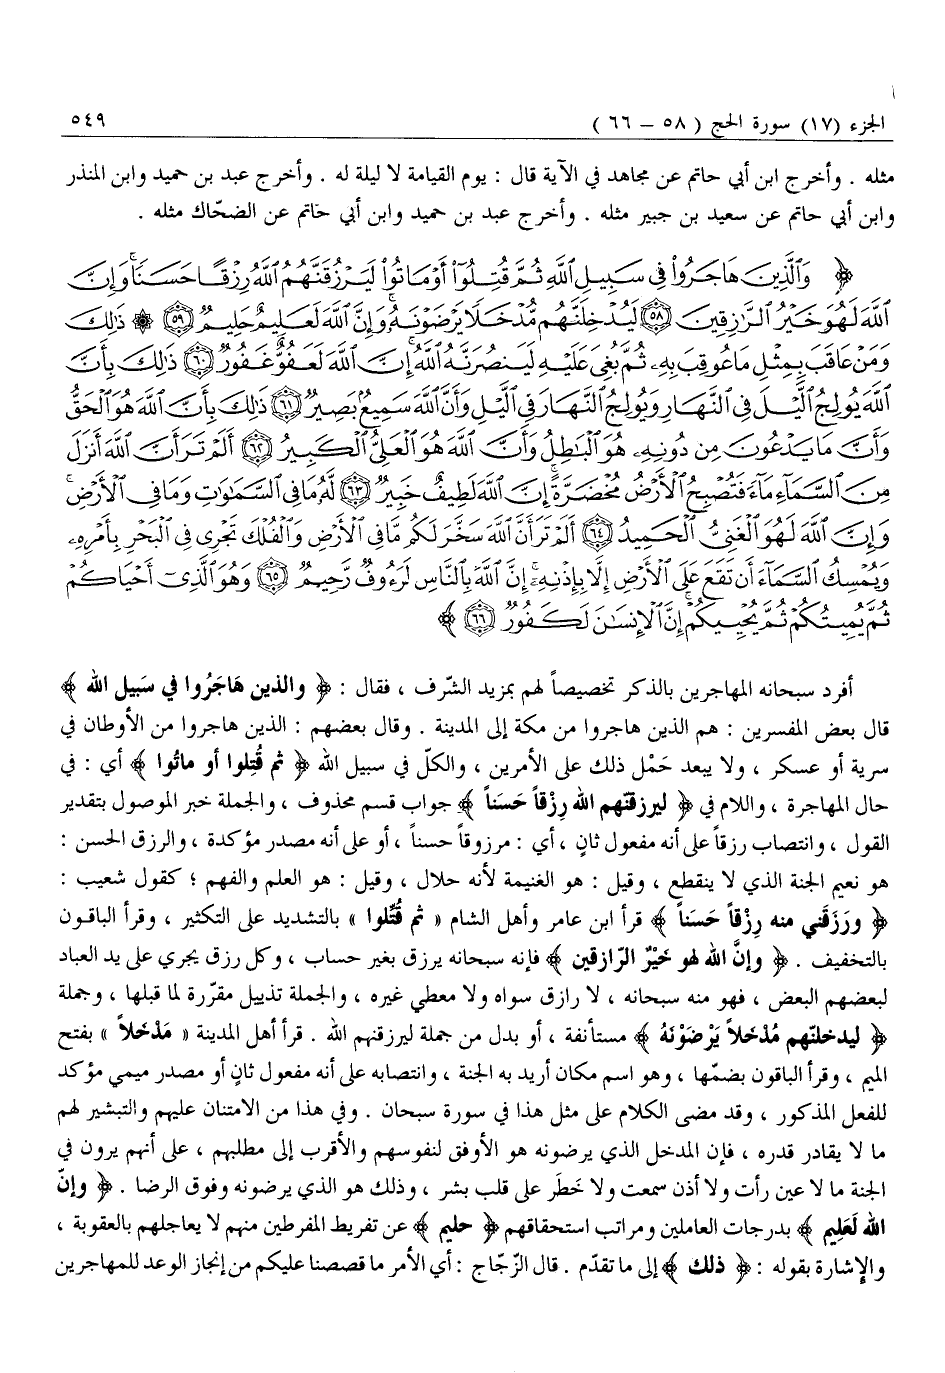 الجزء (١٧) سورة الحج ( ٥٨ – ٦٦ ) ٥٤٩
مثله . وأخرج ابن أبي حاتم عن مجاهد في الآية قال : يوم القيامة لا ليلة له . وأخرج عبد بن حميد وابن المنذر
وابن أبي حاتم عن سعيد بن جبير مثله . وأخرج عبد بن حميد وابن أبي حاتم عن الضحّاك مثله .
﴿ وَالَّذِينَ هَاجَرُوا فِي سَبِيلِ اللَّهِ ثُمَّ قُتِلُوا أَوْ مَاتُوا لَيَرْزُقَنَّهُمُ اللَّهُ رِزْقًا حَسَنًا وَإِنَّ
اللَّهَ لَهُوَ خَيْرُ الرَّازِقِينَ ٥٨ لَيُدْخِلَنَّهُم مُّدْخَلًا يَرْضَوْنَهُ وَإِنَّ اللَّهَ لَعَلِيمٌ حَلِيمٌ ٥٩ ۞ ذَٰلِكَ
وَمَنْ عَاقَبَ بِمِثْلِ مَا عُوقِبَ بِهِ ثُمَّ بُغِيَ عَلَيْهِ لَيَنصُرَنَّهُ اللَّهُ إِنَّ اللَّهَ لَعَفُوٌّ غَفُورٌ ٦٠ ذَٰلِكَ بِأَنَّ
اللَّهَ يُولِجُ اللَّيْلَ فِي النَّهَارِ وَيُولِجُ النَّهَارَ فِي اللَّيْلِ وَأَنَّ اللَّهَ سَمِيعٌ بَصِيرٌ ٦١ ذَٰلِكَ بِأَنَّ اللَّهَ هُوَ الْحَقُّ
وَأَنَّ مَا يَدْعُونَ مِن دُونِهِ هُوَ الْبَاطِلُ وَأَنَّ اللَّهَ هُوَ الْعَلِيُّ الْكَبِيرُ ٦٢ أَلَمْ تَرَ أَنَّ اللَّهَ أَنزَلَ
مِنَ السَّمَاءِ مَاءً فَتُصْبِحُ الْأَرْضُ مُخْضَرَّةً إِنَّ اللَّهَ لَطِيفٌ خَبِيرٌ ٦٣ لَّهُ مَا فِي السَّمَاوَاتِ وَمَا فِي الْأَرْضِ
وَإِنَّ اللَّهَ لَهُوَ الْغَنِيُّ الْحَمِيدُ ٦٤ أَلَمْ تَرَ أَنَّ اللَّهَ سَخَّرَ لَكُم مَّا فِي الْأَرْضِ وَالْفُلْكَ تَجْرِي فِي الْبَحْرِ بِأَمْرِهِ
وَيُمْسِكُ السَّمَاءَ أَن تَقَعَ عَلَى الْأَرْضِ إِلَّا بِإِذْنِهِ إِنَّ اللَّهَ بِالنَّاسِ لَرَءُوفٌ رَّحِيمٌ ٦٥ وَهُوَ الَّذِي أَحْيَاكُمْ
ثُمَّ يُمِيتُكُمْ ثُمَّ يُحْيِيكُمْ إِنَّ الْإِنسَانَ لَكَفُورٌ ٦٦ ﴾
أفرد سبحانه المهاجرين بالذكر تخصيصاً لهم بمزيد الشّرف ، فقال : ﴿ والذين هَاجَرُوا في سَبيل الله ﴾
قال بعض المفسرين : هم الذين هاجروا من مكة إلى المدينة . وقال بعضهم : الذين هاجروا من الأوطان في
سرية أو عسكر ، ولا يبعد حَمْل ذلك على الأمرين ، والكلّ في سبيل الله ﴿ ثم قُتِلوا أو ماتُوا ﴾ أي : في
حال المهاجرة ، واللام في ﴿ ليرزقنّهم الله رِزْقاً حَسَناً ﴾ جواب قسم محذوف ، والجملة خبر الموصول بتقدير
القول ، وانتصاب رزقاً على أنه مفعول ثانٍ ، أي : مرزوقاً حسناً ، أو على أنه مصدر مؤكدة ، والرزق الحسن :
هو نعيم الجنة الذي لا ينقطع ، وقيل : هو الغنيمة لأنه حلال ، وقيل : هو العلم والفهم ؛ كقول شعيب :
﴿ ورَزَقَني منه رِزْقاً حَسَناً ﴾ قرأ ابن عامر وأهل الشام « ثم قُتِّلوا » بالتشديد على التكثير ، وقرأ الباقون
بالتخفيف . ﴿ وإنَّ الله لهو خَيْرُ الرّازقين ﴾ فإنه سبحانه يرزق بغير حساب ، وكل رزق يجري على يد العباد
لبعضهم البعض ، فهو منه سبحانه ، لا رازق سواه ولا معطي غيره ، والجملة تذييل مقرّرة لما قبلها ، وجملة
﴿ ليدخلنّهم مُدْخلاً يَرْضَوْنَهُ ﴾ مستأنفة ، أو بدل من جملة ليرزقنهم الله . قرأ أهل المدينة « مَدْخلاً » بفتح
الميم ، وقرأ الباقون بضمّها ، وهو اسم مكان أريد به الجنة ، وانتصابه على أنه مفعول ثانٍ أو مصدر ميمي مؤكد
للفعل المذكور ، وقد مضى الكلام على مثل هذا في سورة سبحان . وفي هذا من الامتنان عليهم والتبشير لهم
ما لا يقادر قدره ، فإن المدخل الذي يرضونه هو الأوفق لنفوسهم والأقرب إلى مطلبهم ، على أنهم يرون في
الجنة ما لا عين رأت ولا أذن سمعت ولا خَطَر على قلب بشر ، وذلك هو الذي يرضونه وفوق الرضا . ﴿ وإنّ
الله لَعَلِيم ﴾ بدرجات العاملين ومراتب استحقاقهم ﴿ حليم ﴾ عن تفريط المفرطين منهم لا يعاجلهم بالعقوبة ،
والإشارة بقوله : ﴿ ذلك ﴾ إلى ما تقدّم . قال الزّجاج : أي الأمر ما قصصنا عليكم من إنجاز الوعد للمهاجرين